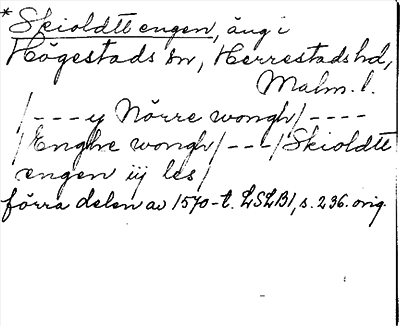 * Skioldtt engen, äng i
Högestads sn, Herrestads hd,
Malm. l.
/ - - - y Nörre wongh / - - - -
/ Enghe wongh / - - - / Skioldtt
engen iij les /
förra delen av 1570-t. LSLB1, s. 236. orig.